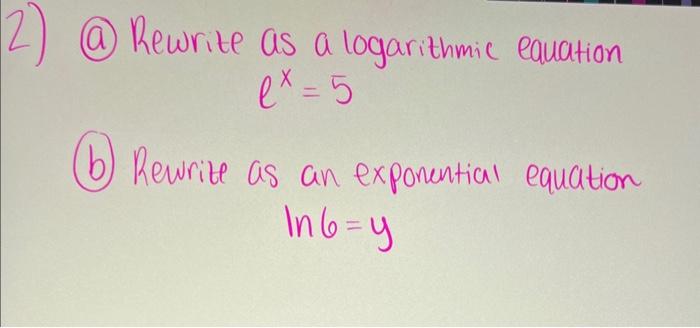 2) (a) Rewrite as a logarithmic equation
e^x = 5
(b) Rewrite as an exponential equation
ln 6 = y